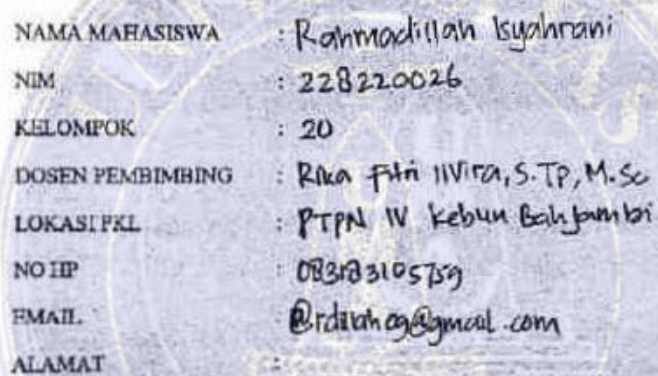 NAMA MAHASISWA : Rahmadillah Isyahrani
NIM : 228220026
KELOMPOK : 20
DOSEN PEMBIMBING : Rika Fitri Ilvira, S.TP, M.Sc
LOKASI PKL : PTPN IV Kebun Bah Jambi
NO HP : 083183105759
EMAIL :
ALAMAT :